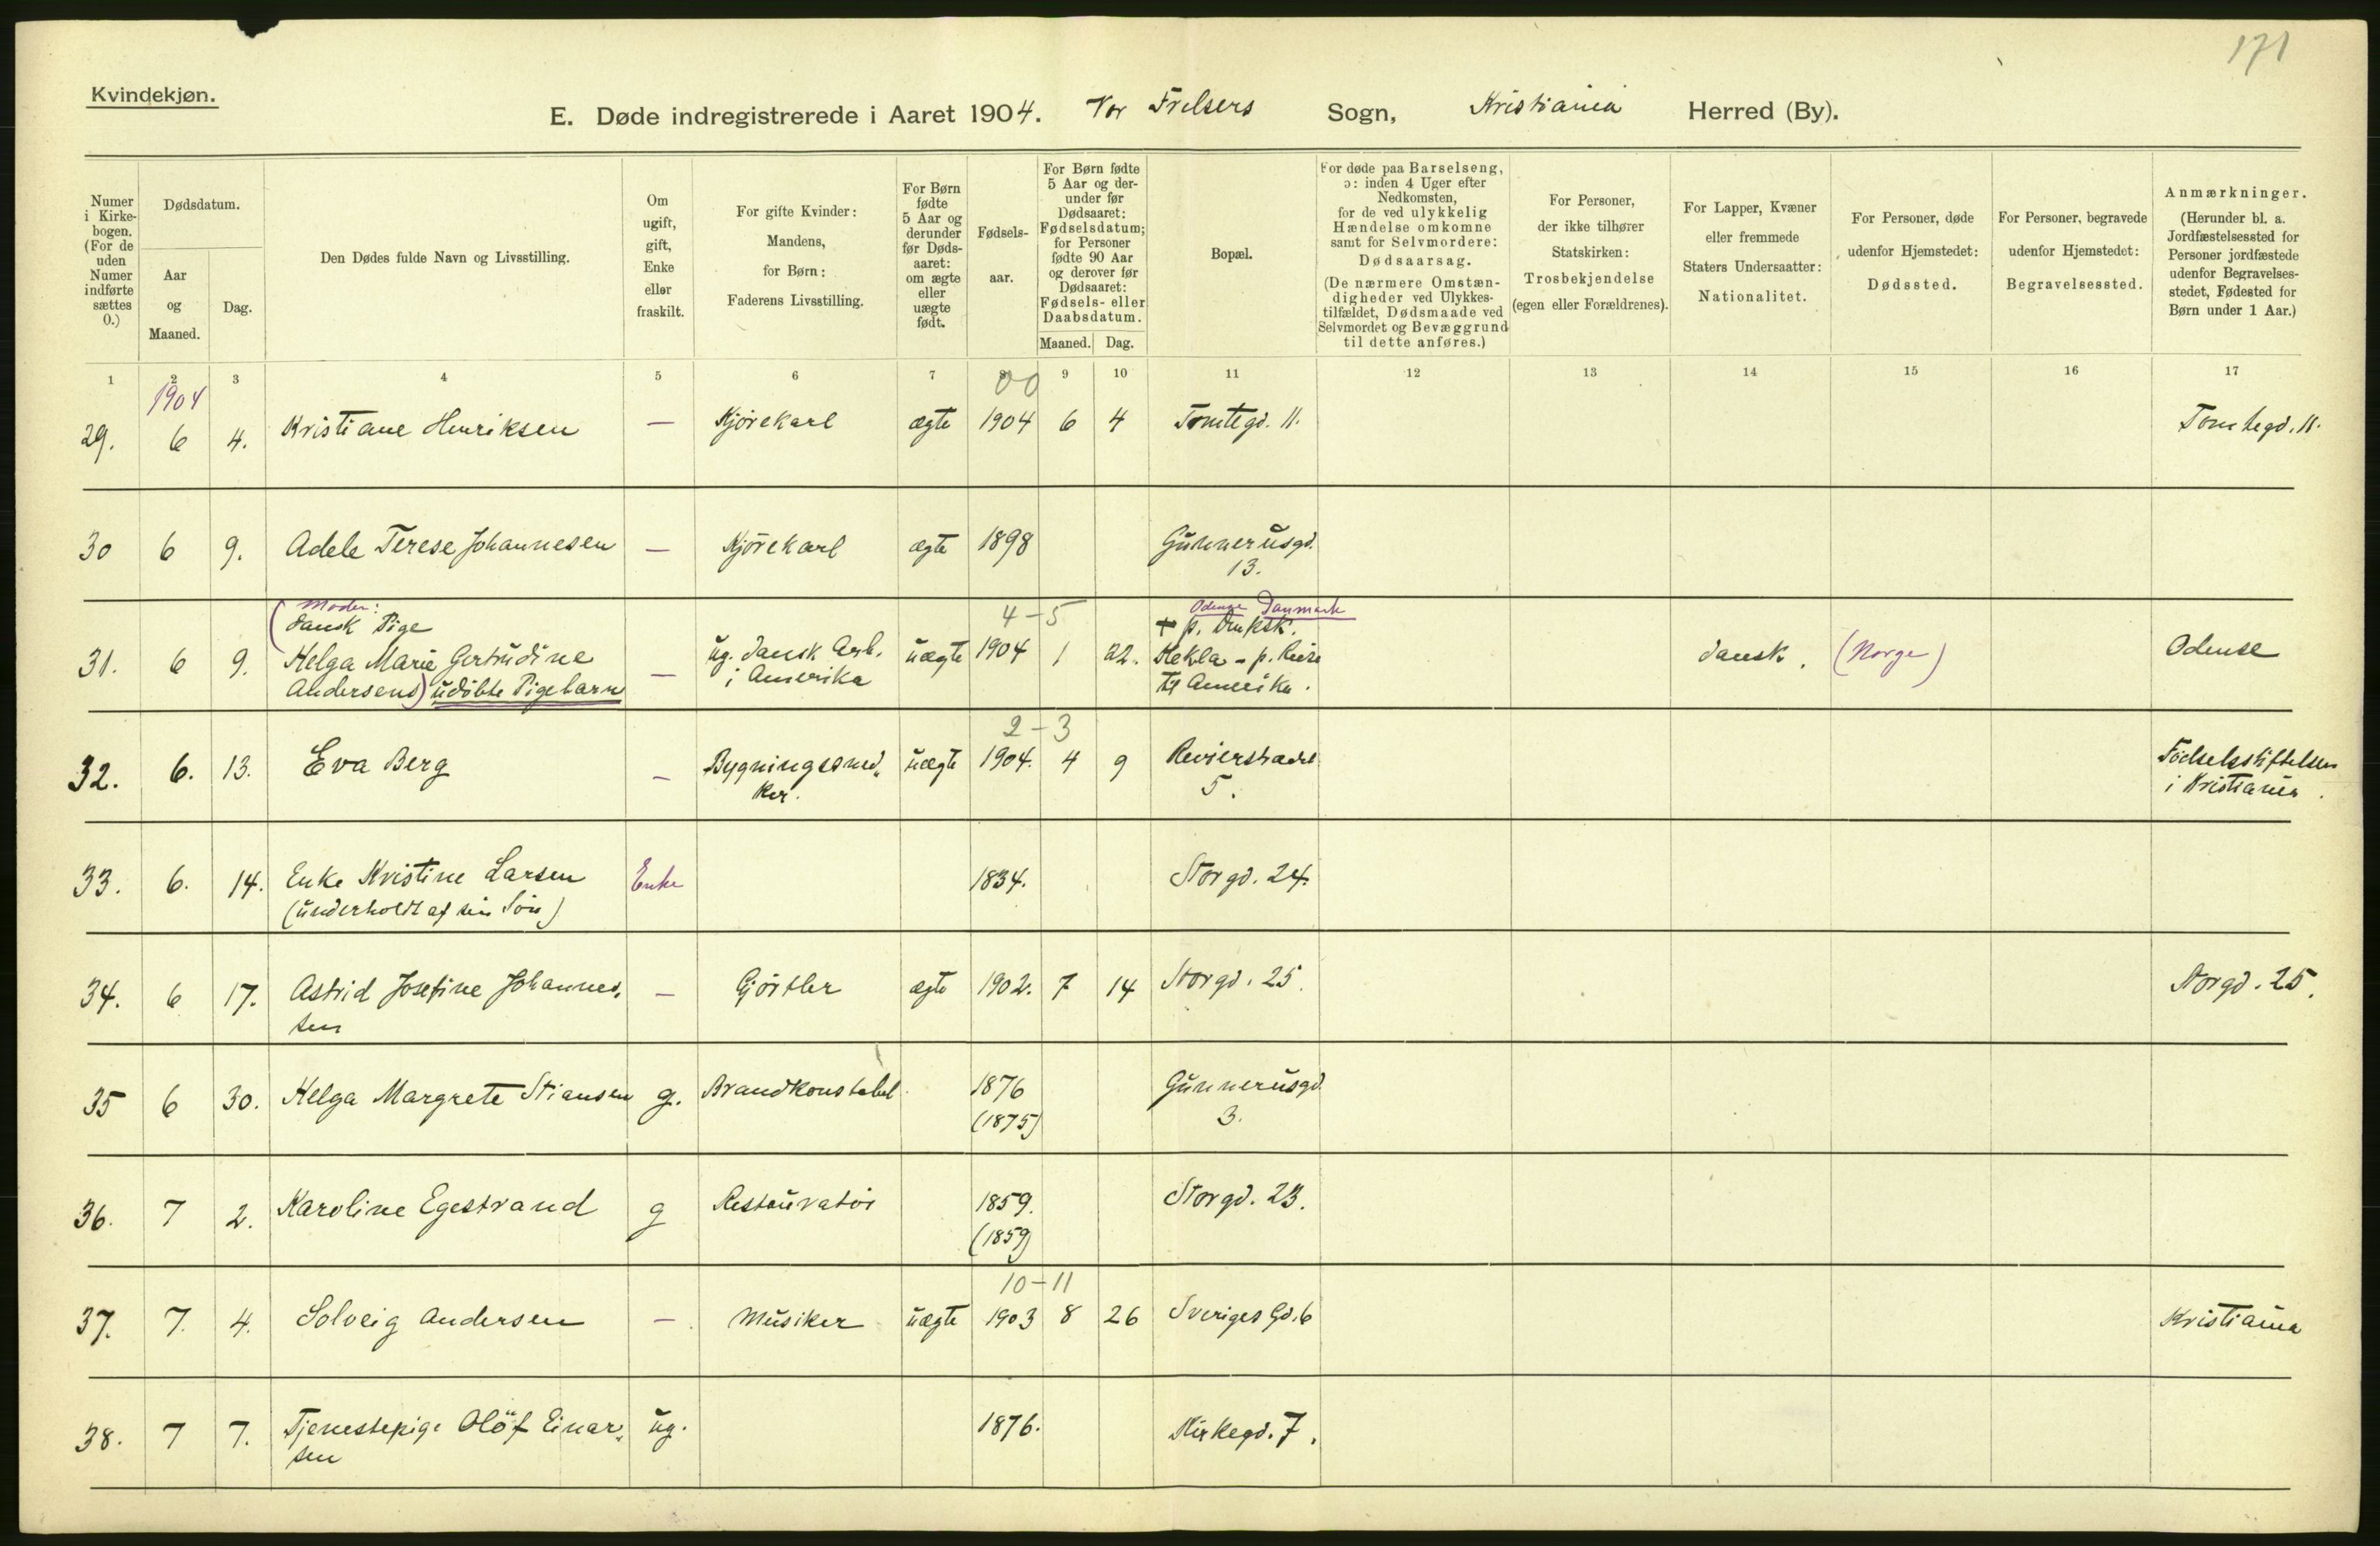 171
Kvindekjøn.
E. Døde indregistrerede i Aaret 1904. Vor Frelsers Sogn, Kristiania Herred (By).
Numer i Kirkebogen. (For de uden Numer indførte sættes 0.)
Dødsdatum.
Aar og Maaned.
Dag.
Den Dødes fulde Navn og Livsstilling.
Om ugift, gift, Enke eller fraskilt.
For gifte Kvinder: Mandens, for Børn: Faderens Livsstilling.
For Børn fødte 5 Aar og derunder før Dødsaaret: om ægte eller uægte født.
Fødselsaar.
For Børn fødte 5 Aar og derunder før Dødsaaret: Fødselsdatum; for Personer fødte 90 Aar og derover før Dødsaaret: Fødsels- eller Daabsdatum.
Maaned. Dag.
Bopæl.
For døde paa Barselseng, ɔ: inden 4 Uger efter Nedkomsten, for de ved ulykkelig Hændelse omkomne samt for Selvmordere: Dødsaarsag.
(De nærmere Omstændigheder ved Ulykkestilfældet, Dødsmaade ved Selvmordet og Bevæggrund til dette anføres.)
For Personer, der ikke tilhører Statskirken: Trosbekjendelse (egen eller Forældrenes).
For Lapper, Kvæner eller fremmede Staters Undersaatter: Nationalitet.
For Personer, døde udenfor Hjemstedet: Dødssted.
For Personer, begravede udenfor Hjemstedet: Begravelsessted.
Anmærkninger.
(Herunder bl. a. Jordfæstelsessted for Personer jordfæstede udenfor Begravelsesstedet, Fødested for Børn under 1 Aar.)
1 2 3 4 5 6 7 8 9 10 11 12 13 14 15 16 17
1904 00
29. 6 4. Kristiane Henriksen — Kjørekarl ægte 1904 6 4 Tomtegd. 11. Tomtegd. 11.
30 6 9. Adele Terese Johannesen — Kjørekarl ægte 1898 Gunnerusgd.
13.
(Moder: 4-5 Odense Danmark
dansk Pige + p.
31. 6 9. Helga Marie Gertrudine — ug. dansk Arb. uægte 1904 1 22. Hekla - p. Reise dansk. (Norge) Odense
Andersens) udøbte Pigebarn i Amerika til Amerika.
2-3
32. 6. 13. Eva Berg — Bygningssned- uægte 1904. 4 9 Revierstrædet Fødselsstiftelsen
ker. 5. i Kristiania.
33. 6. 14. Enke Kristine Larsen Enke 1834. Storgd. 24.
(underholdt af sin Søn)
34. 6 17. Astrid Josefine Johannes- — Gjørtler ægte 1902. 7 14 Storgd. 25. Storgd. 25.
sen
35 6 30. Helga Margrete Stiansen g. Brandkonstabel 1876 Gunnerusgd.
(1875) 3.
36. 7 2. Karoline Egestrand g Restauratør 1859. Storgd. 23.
(1859)
10-11
37. 7. 4. Solveig Andersen — Musiker uægte 1903 8 26 Sveriges Gd. 6 Kristiania
38. 7 7. Tjenestepige Olöf Einar- ug. 1876. Kirkegd. 7.
sen